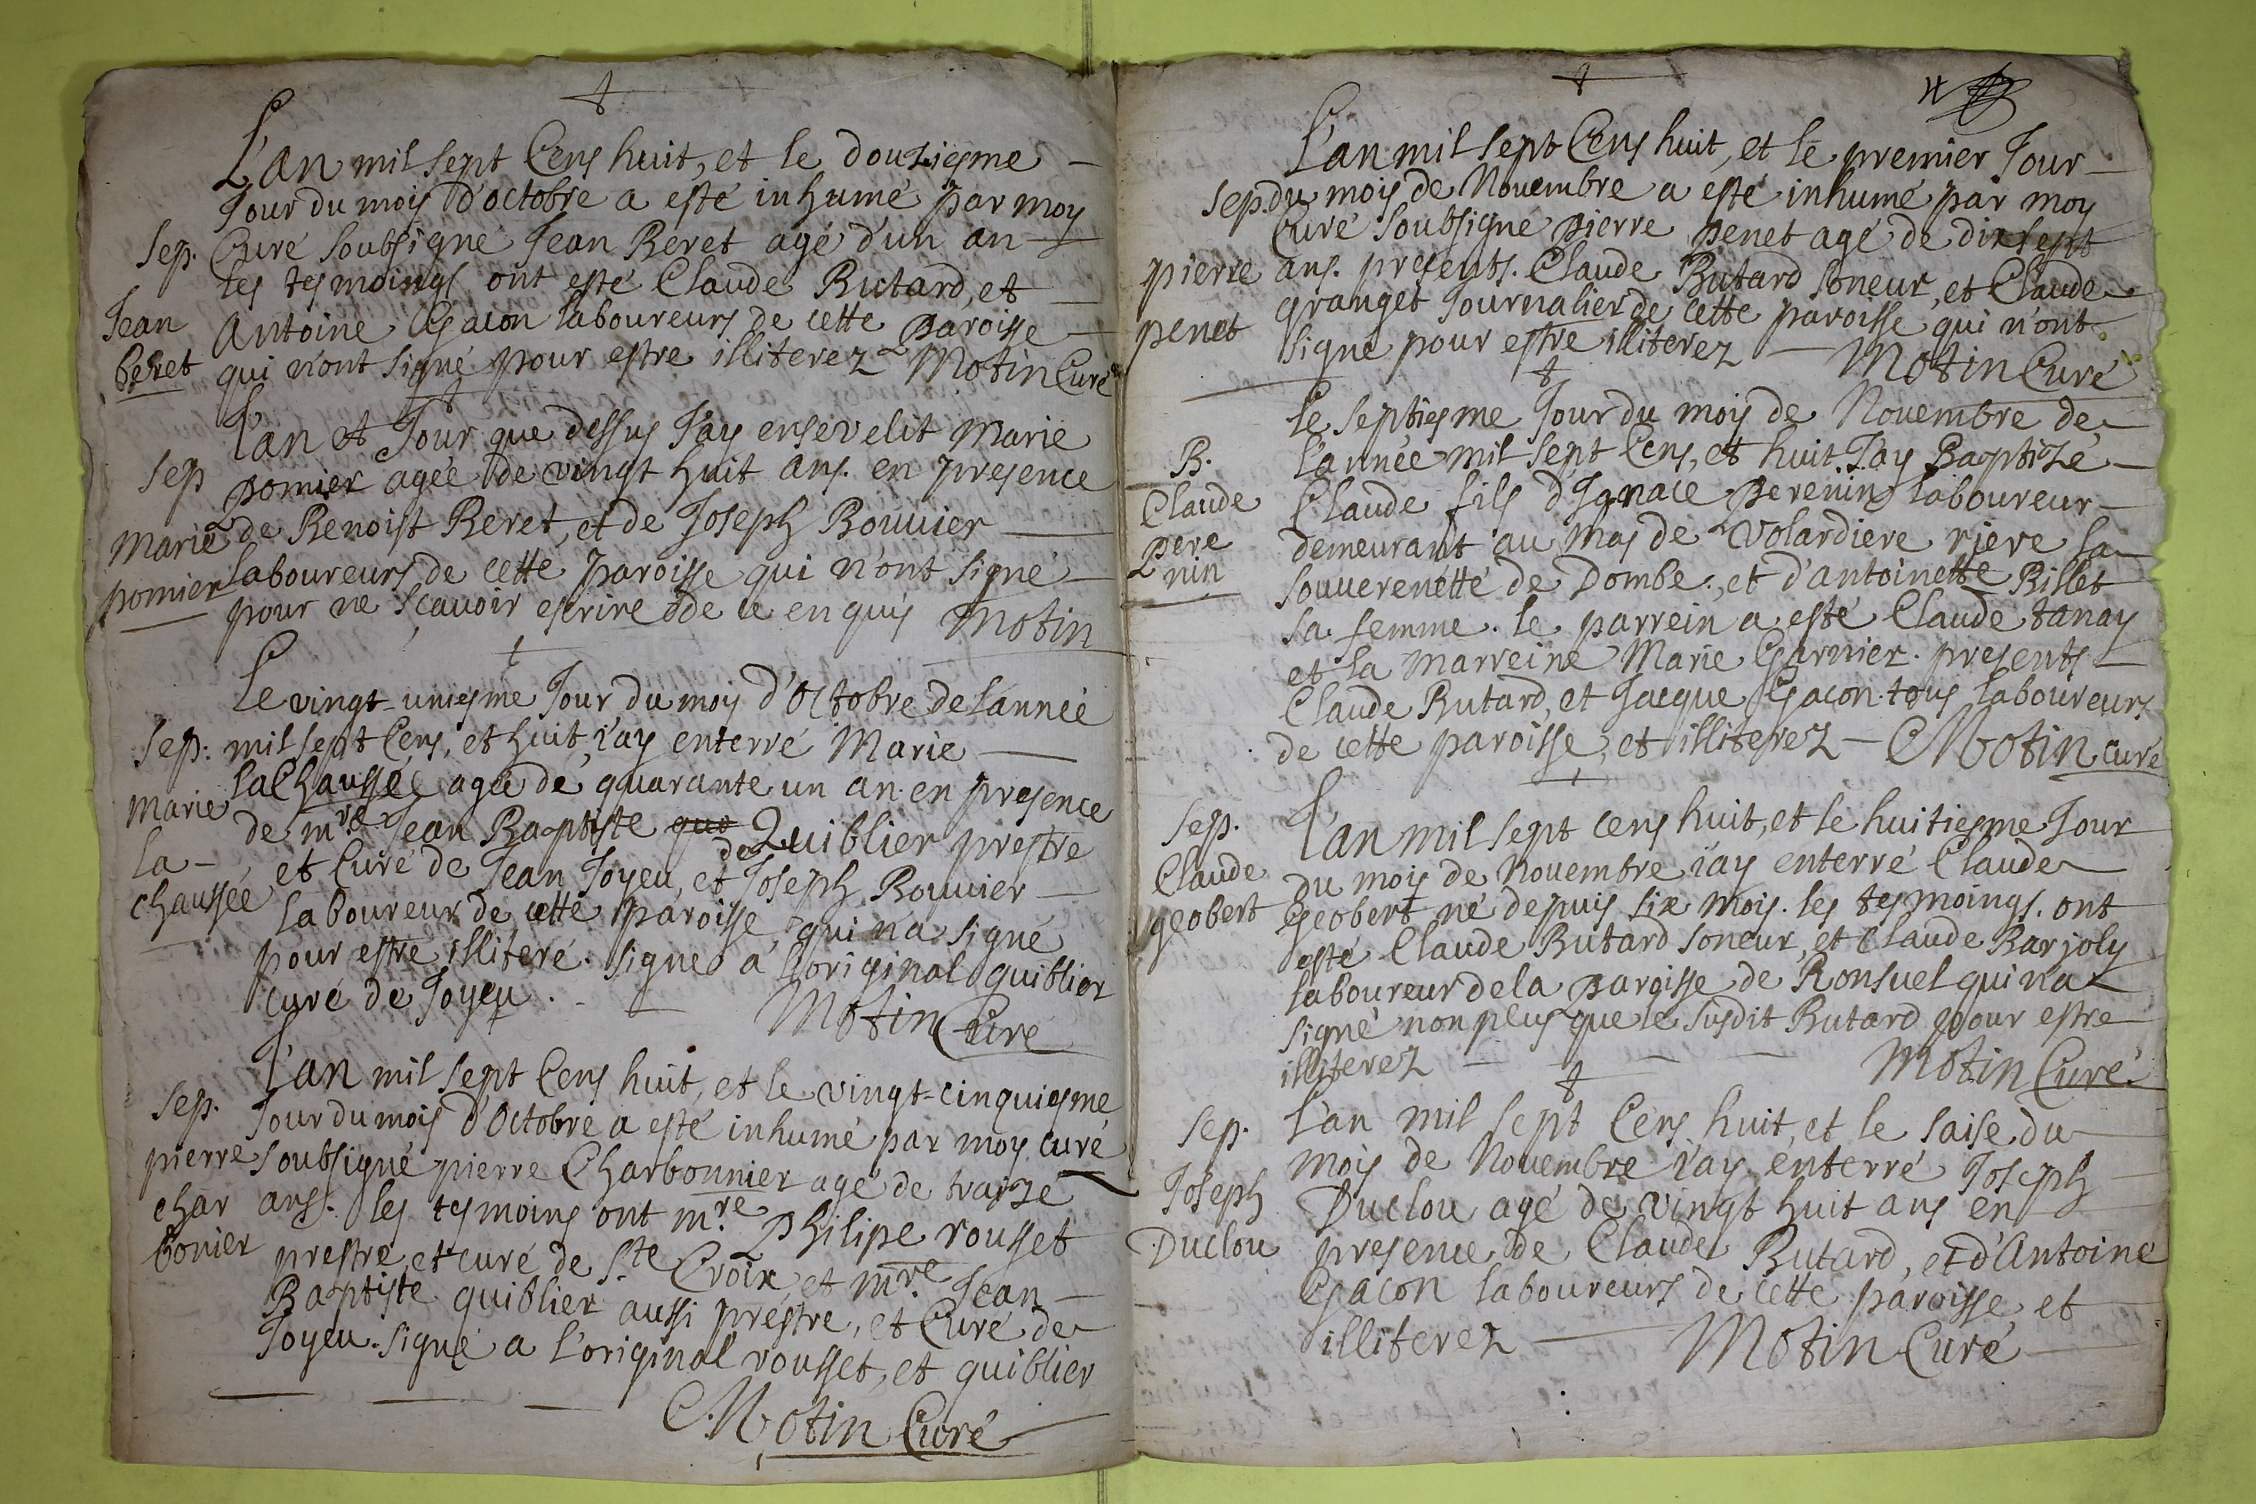 L'an mil sept Cens huit, et le douziesme
Jour du mois d'octobre a esté inhumé par moy
Sep. Curé soubsigné Jean Beret agé d'un an
les tesmoings ont esté Claude Butard, et
Jean Antoine Gacon laboureurs de cette paroisse
beret qui n'ont signé pour estre illiterez Motin Curé
L'an et Jour que dessus J'ay ensevelit Marie
Sep pomier agée de vingt huit ans. en presence
Marie de Benoist Beret, et de Joseph Bouvier
pomier laboureurs de cette paroisse qui n'ont signé
pour ne sçavoir escrire de ce enquis Motin
Le vingt-uniesme Jour du mois d'Octobre de l'année
Sep: mil sept Cens, et huit j'ay enterré Marie
Marie laChaussée agée de quarante un an. en presence
de mre Jean Baptiste quo Quiblier prestre
la- et Curé de Jean Joyeu, et de Joseph Bouvier
chaussée laboureur de cette paroisse, qui na signé
pour estre illiteré. signé à l'original quiblier
curé de Joyeu.
Motin Curé
L'an mil sept Cens huit, et le vingt-cinquiesme
Sep. Jour du mois d'Octobre a esté inhumé par moy curé
pierre soubsigné pierre Charbonnier agé de traize
char ans. les tesmoins ont mre Philipe rousset
bonier prestre, et curé de Ste Croix, et mre Jean
Baptiste quiblier aussi prestre, et Curé de
Joyeu. signé a l'original rousset, et quiblier
Motin Curé
4
L'an mil sept Cens huit, et le premier Jour
Sep. du mois de Novembre a esté inhumé par moy
Curé soubsigné pierre penet agé de dixsept
pierre ans. presents. Claude Butard soneur, et Claude
penet granget Journalier de cette paroisse qui n'ont
signé pour estre illiterez Motin Curé
Le septiesme Jour du mois de Novembre de
B. L'année mil sept Cens, et huit J'ay Baptizé
Claude Claude fils d'Ignace perenin laboureur
pere demeurant au Mas de Volardiere riere la
nin souverenetté de Dombe., et d'antoinette Billet
sa femme. le parrein a esté Claude tanay
et la marreine Marie Garnier. presents
Claude Butard, et Jacque Gacon tous laboureurs
de cette paroisse, et illiterez Motin curé
Sep. L'an mil sept cens huit, et le huitiesme Jour
Claude du mois de Novembre j'ay enterré Claude
geobert Geobert né depuis six mois. les tesmoings. ont
esté Claude Butard soneur, et Claude Barjoly
laboureur de la paroisse de Ronsuel qui na
signé non plus que le susdit Butard pour estre
illiterez Motin Curé
L'an mil sept Cens huit, et le saise du
Sep. mois de Novembre j'ay enterré Joseph
Joseph Duclou agé de vingt huit ans en
Duclou presence de Claude Butard, et d'Antoine
Gacon laboureurs de cette paroisse, et
illiterez Motin Curé